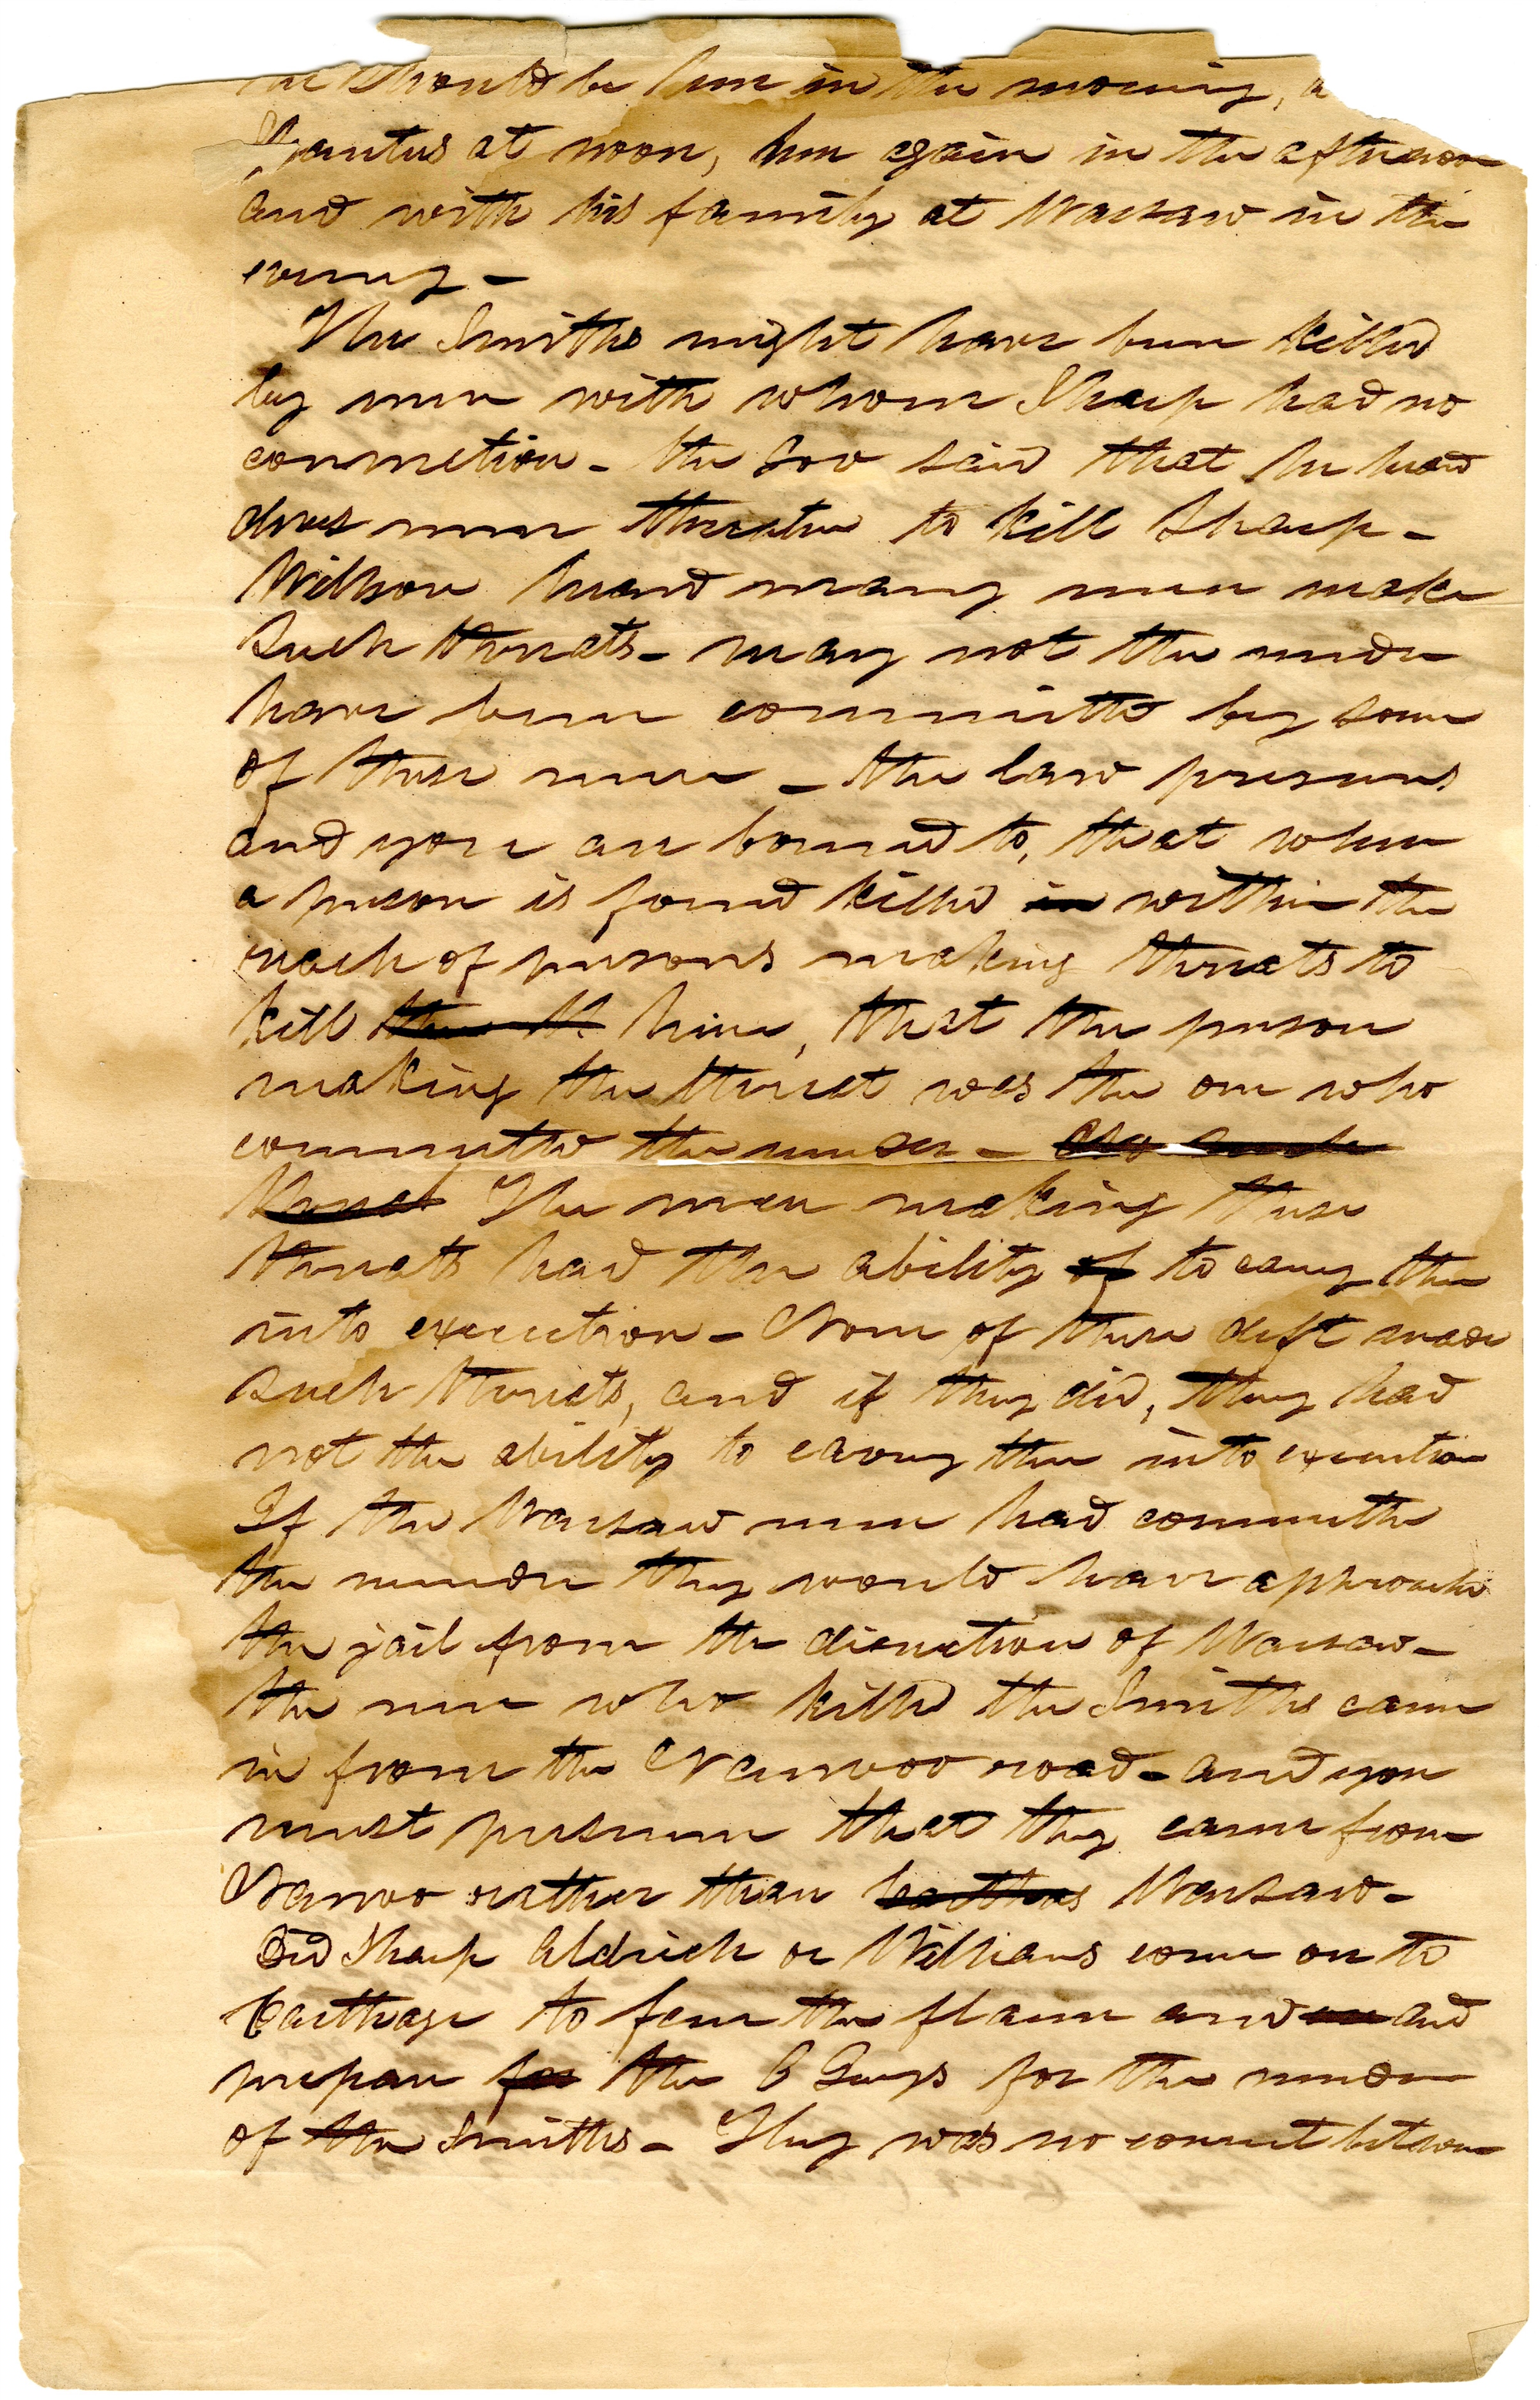 he should be here in the morning, a
at noon, here again in the afternoon
and with his family at Warsaw in the
evening -
The Smiths might have been killed
by men with whom Sharp had no
connection - the Gov said that he heard
men threaten to kill Sharp -
Wilson heard many men make
such threats - may not the murder
have been committed by some
of these men - the law presumes
and you are bound to, that when
a person is found killed in within the
reach of persons making threats to
kill him, that the person
making the threat was the one who
committed the murder -
threat The men making these
threats had the ability of to carry them
into execution - None of these deft made
such threats, and if they did, they had
not the ability to carry them into execution
If the Warsaw men had committed
the murder they would have approached
the jail from the direction of Warsaw -
the men who killed the Smiths came
in from the Nauvoo road - and you
must presume that they came from
Nauvoo rather than Carthage Warsaw -
Did Sharp Aldrich or Williams come on to
Carthage to fan the flame and and
prepare for the C Greys for the murder
of the Smiths - They was no concert between